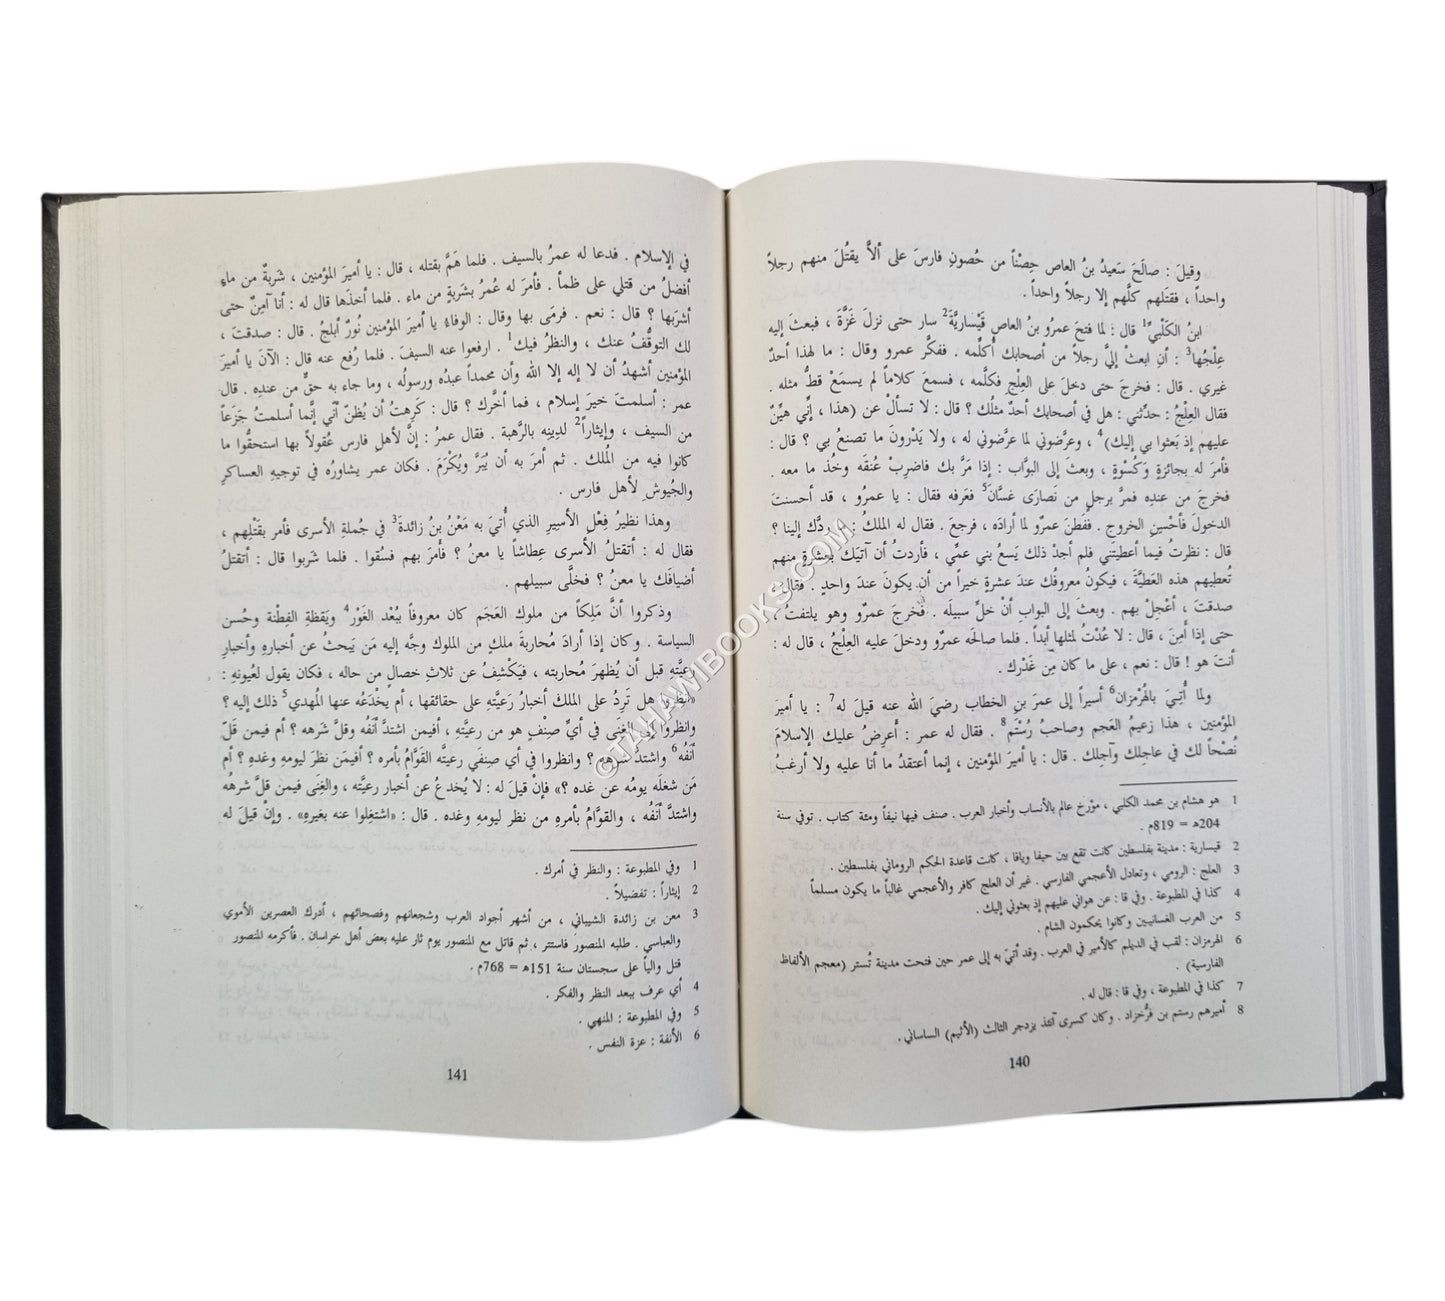 وقيلَ : صالَحَ سَعيدُ بنُ العاص حِصْناً من حُصونِ فارسَ على ألاَّ يقتُلَ منهم رجلاً
واحداً ، فقتَلهم كلَّهم إلا رجلاً واحداً .
ابنُ الكَلْبيّ1 قال : لما فتحَ عمرُو بنُ العاص قَيْساريَّةَ2 سار حتى نزلَ غَزَّةَ ، فبعثَ إليه
عِلْجُها3 : أنِ ابعثْ إليَّ رجلاً من أصحابك أُكلّمه . ففكَّر عمرو وقال : ما لهذا أحدٌ
غيري . قال : فخرجَ حتى دخلَ على العِلْجِ فكلَّمه ، فسمعَ كلاماً لم يسمَعْ قطُّ مثله .
فقال العِلْجُ : حدِّثني : هل في أصحابك أحدٌ مثلُك ؟ قال : لا تسألْ عن (هذا ، إنِّي هيِّنٌ
عليهم إذ بَعثوا بي إليك)4 ، وعرَّضوني لما عرَّضوني له ، ولا يَدْرونَ ما تصنعُ بي ؟ قال :
فأمرَ له بجائزةٍ وَكُسْوةٍ ، وبعثَ إلى البوَّاب : إذا مَرَّ بك فاضرِبْ عُنقَه وخُذ ما معه .
فخرجَ من عندِه فمرَّ برجلٍ من نَصارَى غسَّانَ5 فعَرفه فقال : يا عمرُو ، قد أحسنتَ
الدخولَ فأحْسِنِ الخروجَ . ففطنَ عمرٌو لما أرادَه ، فرجعَ . فقال له الملكُ : ما ردَّك إلينا ؟
قال : نظرتُ فيما أعطيتني فلم أجدْ ذلك يَسعُ بني عمِّي ، فأردتُ أن آتيَك بعشرةٍ منهم
تُعطيهم هذه العَطِيَّةَ ، فيكونُ معروفُك عندَ عشرةٍ خيراً من أن يكونَ عندَ واحدٍ . فقال :
صدقتَ ، أعْجِلْ بهم . وبعثَ إلى البواب أنْ خلِّ سبيلَه . فخرجَ عمرٌو وهو يلتفتُ ،
حتى إذا أمِنَ ، قال : لا عُدْتُ لمثلها أبداً . فلما صالحَه عمرٌو ودخلَ عليه العِلْجُ ، قال له :
أنتَ هو ! قال : نعم ، على ما كان مِن غَدْرك .
ولما أُتِيَ بالهُرْمزان6 أسيراً إلى عمرَ بنِ الخطاب رضيَ الله عنه قيلَ له7 : يا أميرَ
المؤمنين ، هذا زعيمُ العجم وصاحبُ رُسْتَم8 . فقال له عمر : أعرِضُ عليك الإسلامَ
نُصْحاً لك في عاجلِك وآجلِك . قال : يا أميرَ المؤمنين ، إنما أعتقدُ ما أنا عليه ولا أرغبُ
1 هو هشام بن محمد الكلبي ، مؤرخ عالم بالأنساب وأخبار العرب . صنف فيها نيفاً ومئة كتاب . توفي سنة
204هـ = 819م .
2 قيسارية : مدينة بفلسطين كانت تقع بين حيفا ويافا ، كانت قاعدة الحكم الروماني بفلسطين .
3 العلج : الرومي ، وتعادل الأعجمي الفارسي . غير أن العلج كافر والأعجمي غالباً ما يكون مسلماً
4 كذا في المطبوعة . وفي قا : عن هواني عليهم إذ بعثوني إليك .
5 من العرب الغسانيين وكانوا يحكمون الشام .
6 الهرمزان : لقب في الديلم كالأمير في العرب . وقد أتيَ به إلى عمر حين فتحت مدينة تُستر (معجم الألفاظ
الفارسية) .
7 كذا في المطبوعة ، وفي قا : قال له .
8 أميرهم رستم بن فرُّخزاد . وكان كسرى آنئذ يزدجر الثالث (الأثيم) الساساني .
140
في الإسلام . فدعا له عمرُ بالسيف . فلما هَمَّ بقتله ، قال : يا أميرَ المؤمنين ، شَربةٌ من ماءٍ
أفضلُ من قتلي على ظمأ . فأمرَ له عُمرُ بشَربةٍ من ماء . فلما أخذَها قال له : أنا آمِنٌ حتى
أشرَبها ؟ قال : نعم . فرمَى بها وقال : الوفاءُ يا أميرَ المؤمنين نُورٌ أبلجُ . قال : صدقتَ ،
لك التوقُّفُ عنك ، والنظرُ فيك1 . ارفعوا عنه السيفَ . فلما رُفع عنه قال : الآنَ يا أميرَ
المؤمنين أشهدُ أن لا إله إلا الله وأن محمداً عبدُه ورسولُه ، وما جاء به حقٌّ من عندِه . قال
عمر : أسلمتَ خيرَ إسلام ، فما أخَّرك ؟ قال : كَرِهتُ أن يُظنّ أنّي إنَّما أسلمتُ جَزَعاً
من السيف ، وإيثاراً2 لدِينِه بالرَّهبة . فقال عمرُ : إنَّ لأهلِ فارس عُقولاً بها استحقُّوا ما
كانوا فيه من المُلك . ثم أمرَ به أن يُبَرَّ ويُكْرَمَ . فكان عمر يشاورُه في توجيهِ العساكرِ
والجُيوشِ لأهل فارس .
وهذا نظيرُ فِعْلِ الأسيرِ الذي أُتيَ به مَعْنُ بنُ زائدةَ3 في جُملةِ الأسرى فأمر بقَتْلِهم ،
فقال له : أتقتلُ الأسرى عِطاشاً يا معنُ ؟ فأمرَ بهم فسُقوا . فلما شَربوا قال : أتقتلُ
أضيافَك يا معنُ ؟ فخلَّى سبيلَهم .
وذكروا أنَّ مَلِكاً من ملوك العَجَم كان معروفاً ببُعْد الغَوْر4 ويَقظةِ الفِطْنة وحُسن
السياسة . وكان إذا أرادَ محاربةَ ملكٍ من الملوك وجَّه إليه مَن يَبحثُ عن أخبارِه وأخبارِ
رعيَّتِه قبل أن يُظهرَ مُحاربته ، فيَكْشِفُ عن ثلاثِ خصالٍ من حاله ، فكان يقول لعُيونِهِ :
«انظروا هل تَرِدُ على الملك أخبارُ رَعيَّتِه على حقائقها ، أم يخْدَعُه عنها المُهدي5 ذلك إليه ؟
وانظروا إلى الغِنَى في أيِّ صِنْفٍ هو من رعيَّتِه ، أفيمن اشتدَّ أنَفُه وقلَّ شَرهه ؟ أم فيمن قَلّ
أنَفُه6 واشتدَّ شَرهه ؟ وانظروا في أي صِنفَي رعيته القَوَّامُ بأمره ؟ أفيمَن نظرَ ليومِه وغدِه ؟ أم
مَن شغلَه يومُه عن غده ؟» فإنْ قيلَ له : لا يُخدعُ عن أخبار رعيَّته ، والغِنَى فيمن قلَّ شرهُه
واشتدَّ أنَفُه ، والقوَّامُ بأمرهِ من نظر ليومهِ وغده . قال : «اشتغِلوا عنه بغيرِه» . وإنْ قيلَ له
1 وفي المطبوعة : والنظر في أمرك .
2 إيثاراً : تفضيلاً .
3 معن بن زائدة الشيباني ، من أشهر أجواد العرب وشجعانهم وفصحائهم ، أدرك العصرين الأموي
والعباسي . طلبه المنصور فاستتر ، ثم قاتل مع المنصور يوم ثار عليه بعض أهل خراسان . فأكرمه المنصور
قتل والياً على سجستان سنة 151هـ = 768م .
4 أي عرف ببعد النظر والفكر .
5 وفي المطبوعة : المنهي .
6 الأنفة : عزة النفس .
141
©TAHAWIBOOKS.COM